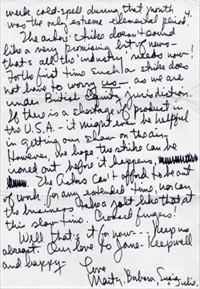 week cold-spell during that month 4.
was the only extreme elemental period".
The actors' strike doesn't sound
like a very promising bit of news -
that's all the 'industry' needs now!
For the first time such a strike does
not have to worry us - as we are
under British jurisdiction.
If there is a shortage of product in
the U.S.A. - it might even be helpful
in getting our show on the air.
However, we hope the strike can be
ironed out before it happens,
The Actors can't afford to be out
of work for any extended time, nor can
the business take a jolt like that at
this slow time. Crossed fingers!
Well that's it for now --- Keep us
abreast. Our love to Jane - Keep well
and happy -
Love
Marty, Barbara, Susie,
Julie.